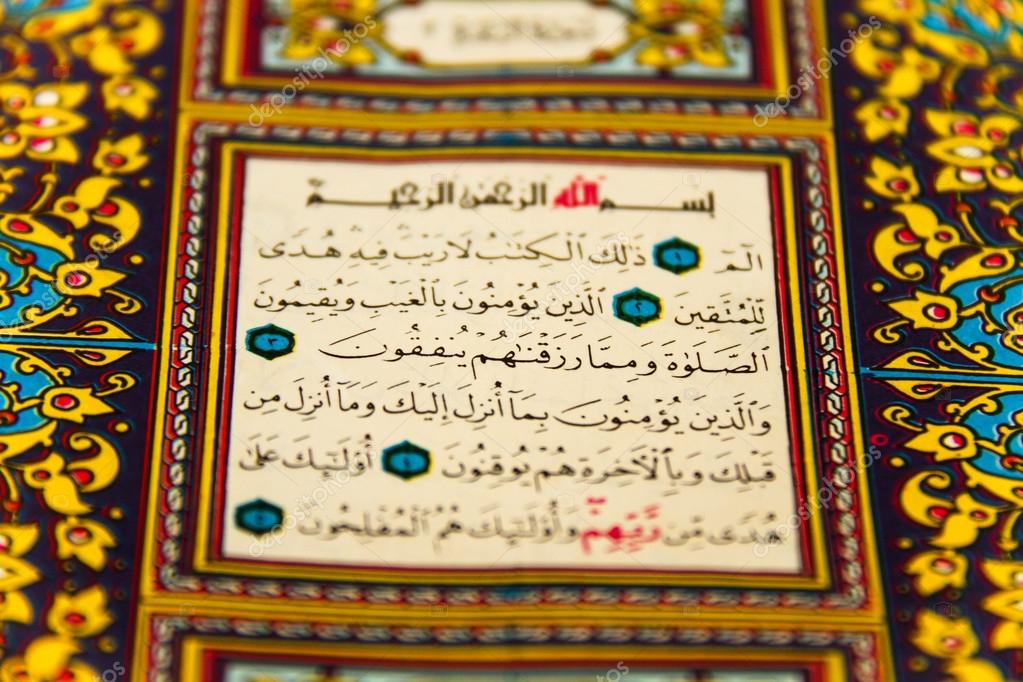 بسم الله الرحمن الرحيم
الٓمٓ ١ ذَٰلِكَ ٱلْكِتَٰبُ لَا رَيْبَ فِيهِ هُدًى
لِّلْمُتَّقِينَ ٢ ٱلَّذِينَ يُؤْمِنُونَ بِٱلْغَيْبِ وَيُقِيمُونَ
ٱلصَّلَوٰةَ وَمِمَّا رَزَقْنَٰهُمْ يُنفِقُونَ ٣
وَٱلَّذِينَ يُؤْمِنُونَ بِمَآ أُنزِلَ إِلَيْكَ وَمَآ أُنزِلَ مِن
قَبْلِكَ وَبِٱلْأَخِرَةِ هُمْ يُوقِنُونَ ٤ أُوْلَٰٓئِكَ عَلَىٰ
هُدًى مِّن رَّبِّهِمْ وَأُوْلَٰٓئِكَ هُمُ ٱلْمُفْلِحُونَ ٥
depositphotos